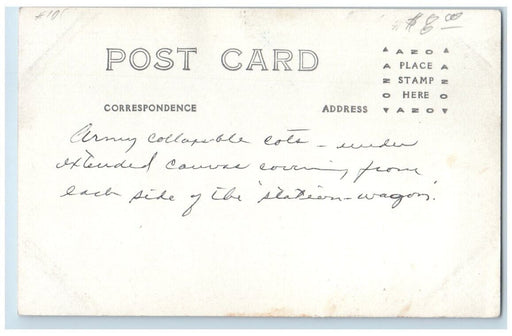 $ 8.00
POST CARD
AZO
PLACE
STAMP
HERE
AZO
CORRESPONDENCE
ADDRESS
Army collapsible cots – under
extended canvas covering from
each side of the "station-wagon".